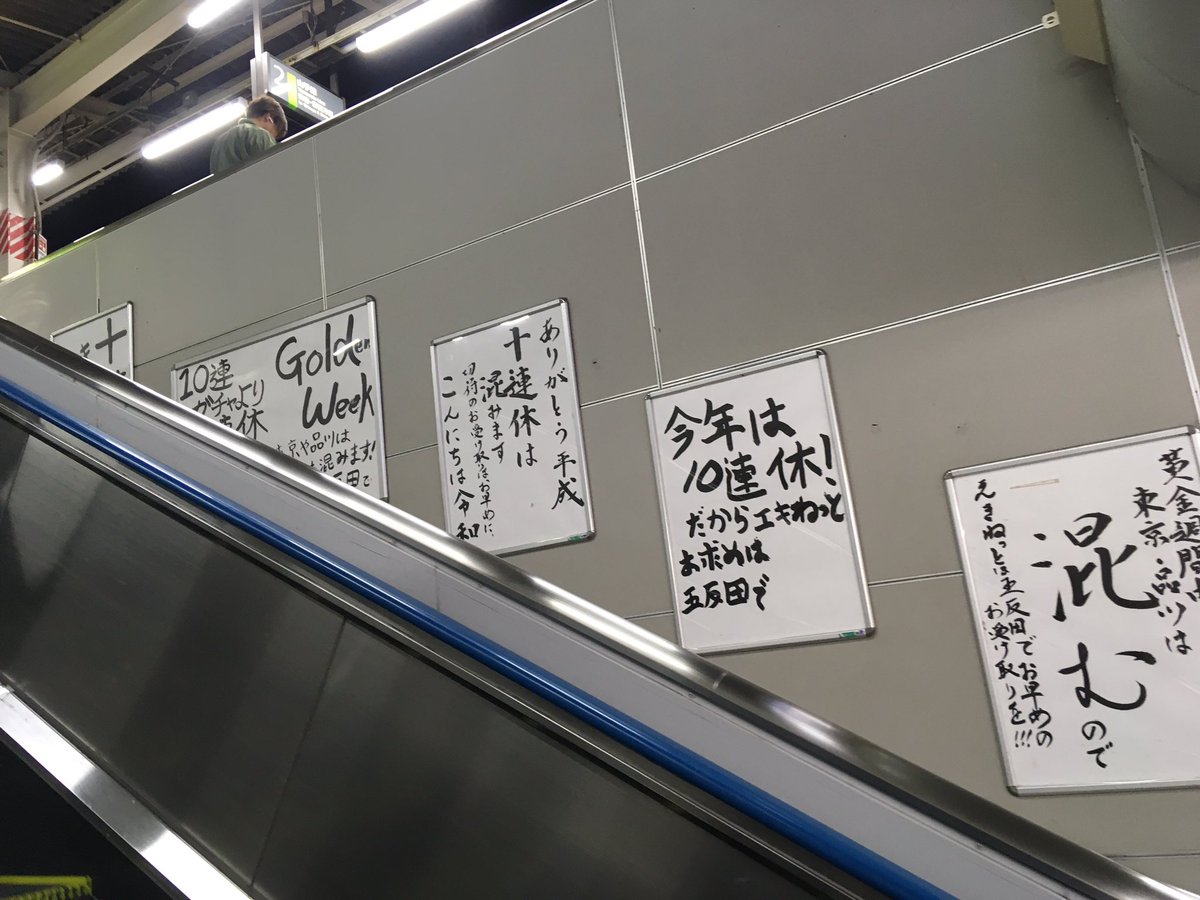 2
十
Golden
Week
10連
ガチャより
休
京や品川は
混みます!
田で
ありがとう平成
十連休は
混みます
切符のお受け取りは、お早めに、
こんにちは令和
今年は
10連休!
だからエキねっと
お求めは
五反田で
黄金週間
東京・品川は
混むので
えきねっとは五反田でお早めの
お受け取りを!!!